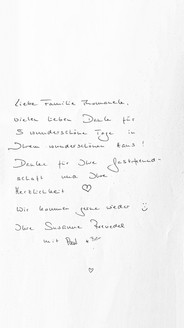 Liebe Familie
vielen lieben Dank für
5 wunderschöne Tage in
Ihrem wunderschönen Haus!
Danke für Ihre Gastfreund-
schaft und Ihre
Herzlichkeit ♡
Wir kommen gerne wieder ☺
Ihre Susanne
mit